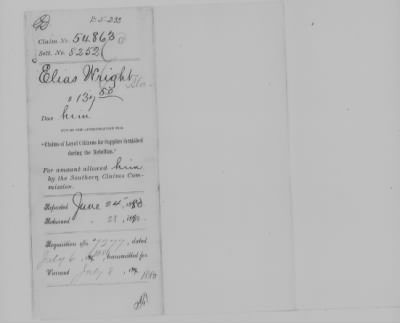 Claim No. 54863
Sett. No. 5252
Elias Wright
$137 50
Due him
OUT OF THE APPROPRIATION FOR
"Claims of Loyal Citizens for Supplies furnished
during the Rebellion."
For amount allowed him
by the Southern Claims Com-
mission.
Reported June 24, 1880
Returned " 28, 1880
Requisition No. 7277, dated
July 6, transmitted for
Warrant July 8, 1880